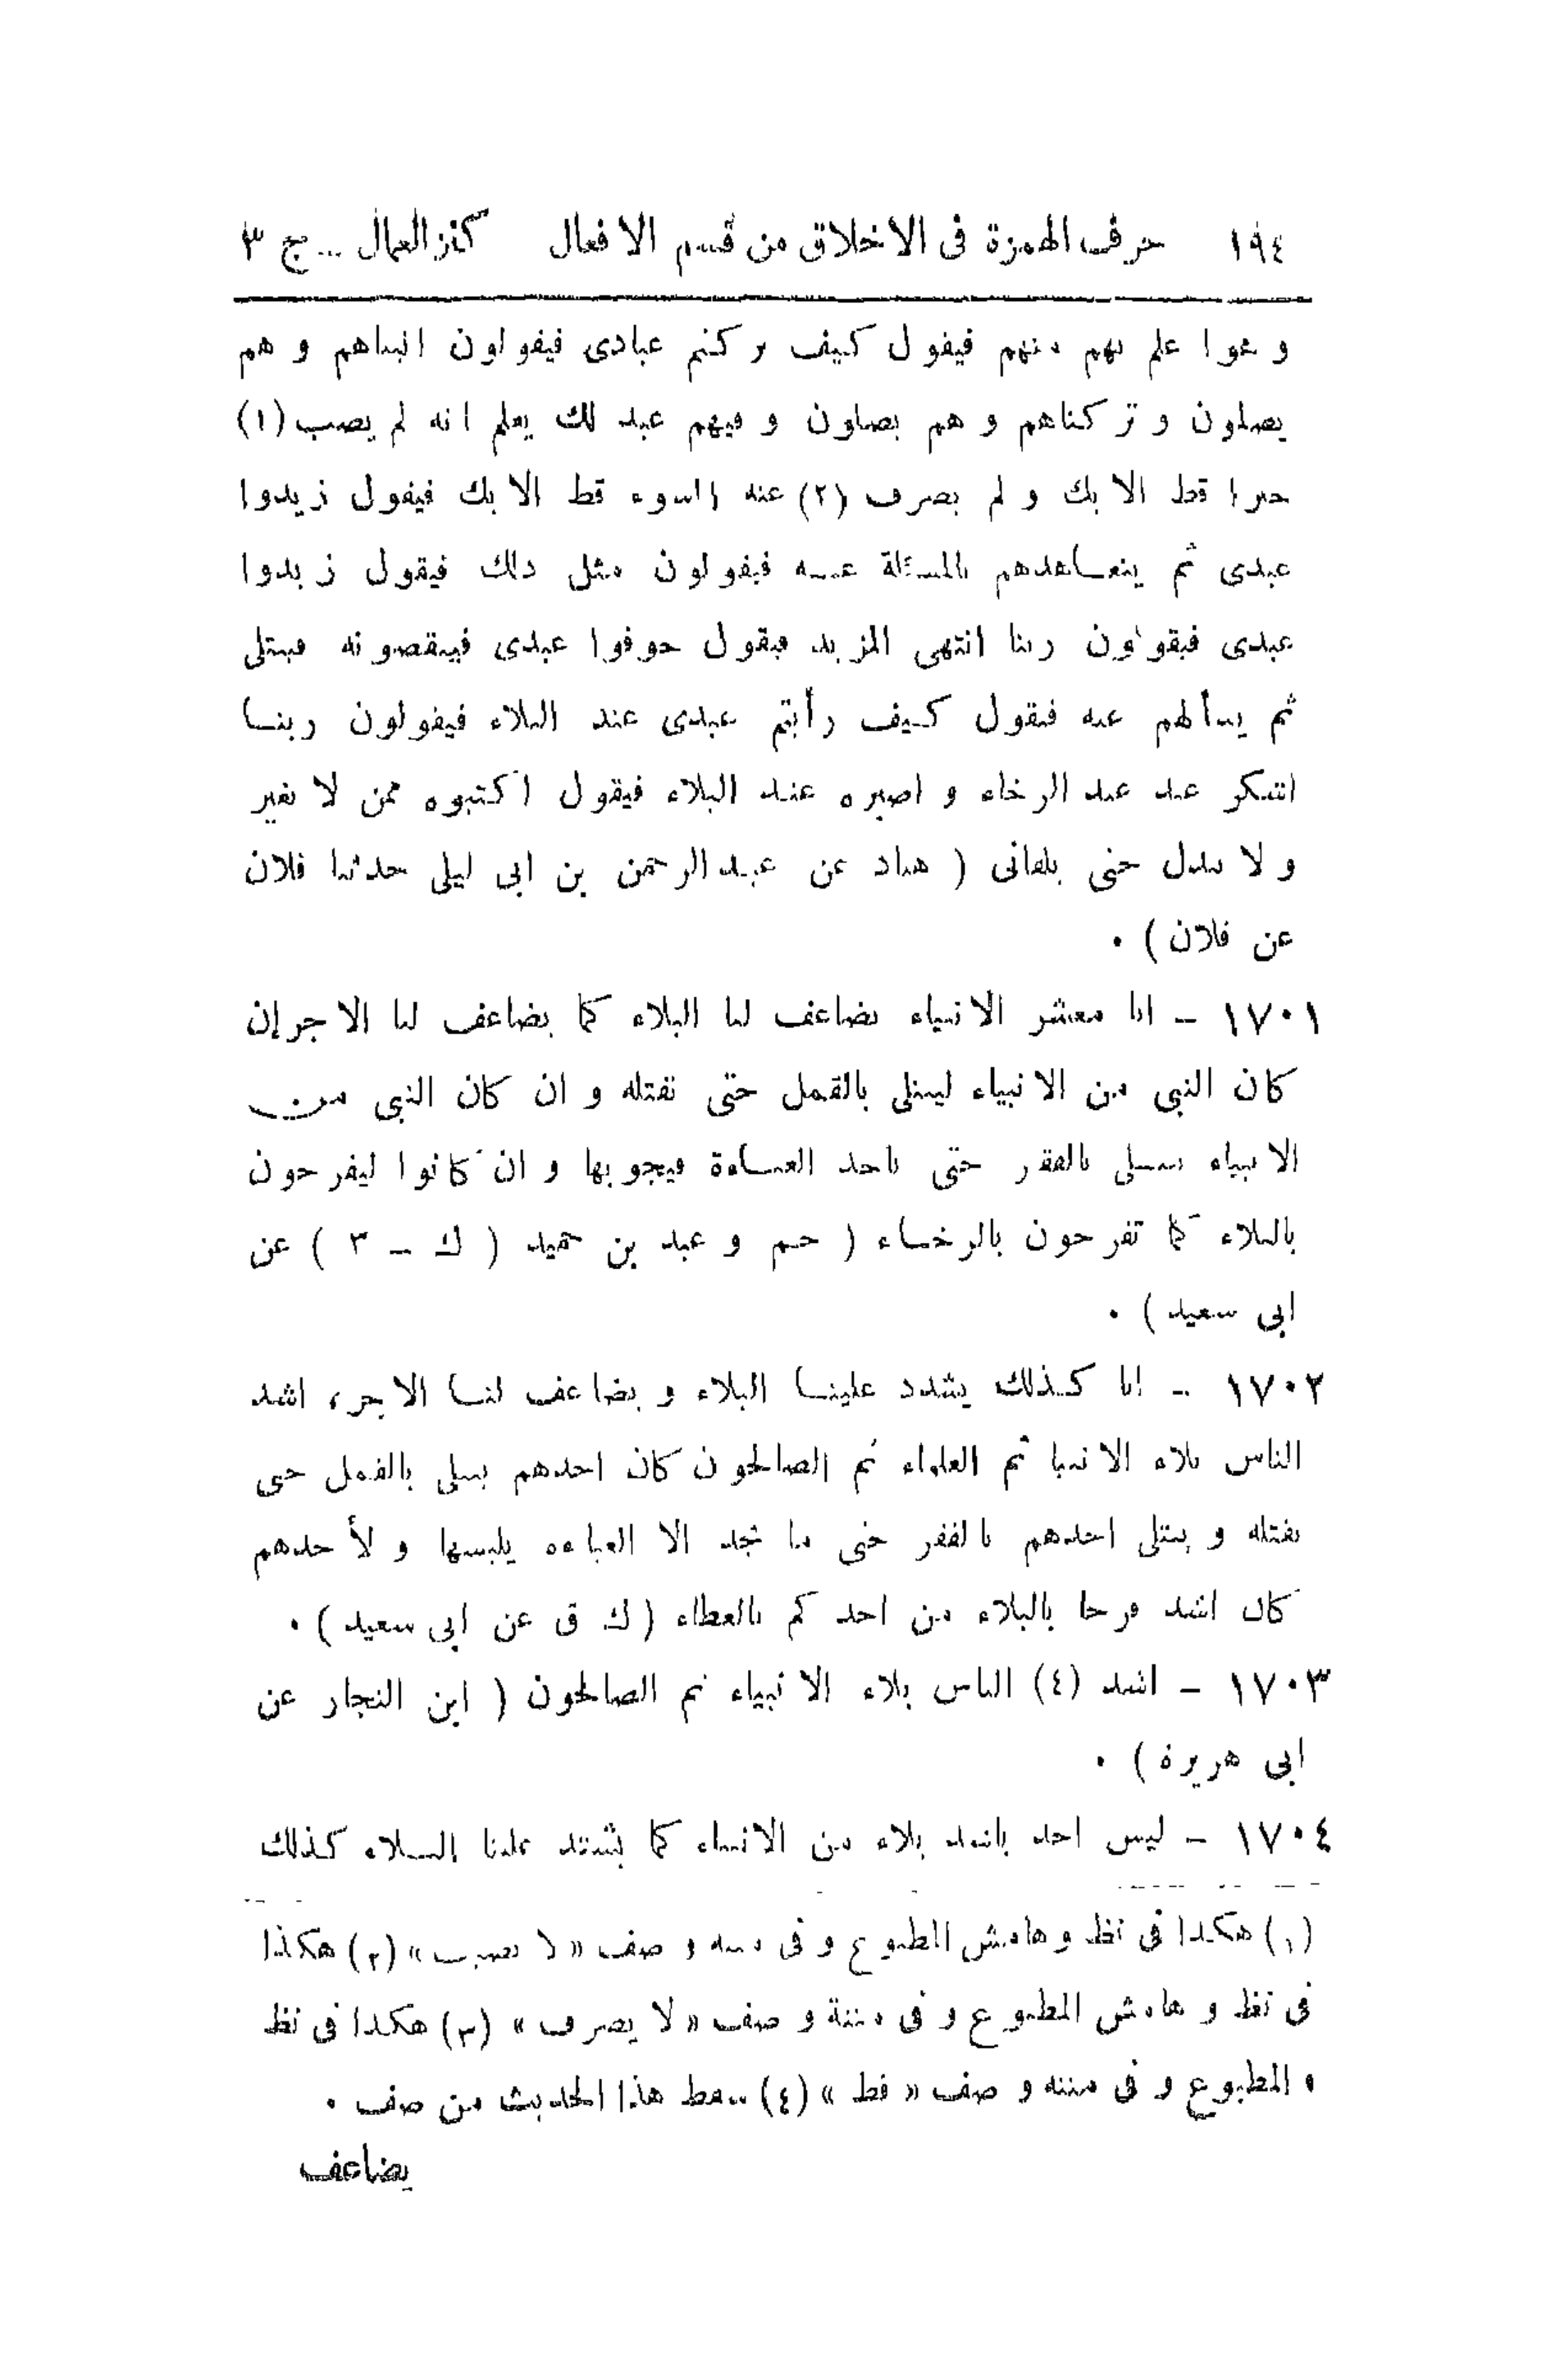 ١٩٤ حرف الهمزة فى الاخلاق من قسم الافعال كنز العمال - ج ٣
و هو اعلم بهم منهم فيقول كيف تركتم عبادى فيقولون اتيناهم و هم
يصلون و تركناهم و هم يصلون و فيهم عبد لك يعلم انه لم يصب (١)
خيرا قط الا بك و لم يصرف (٢) عنه السوء قط الا بك فيقول زيدوا
عبدى ثم يتعاهدهم بالمسئلة عنه فيقولون مثل ذلك فيقول زيدوا
عبدى فيقولون ربنا انتهى المزيد فيقول خوفوا عبدى فينقصونه فيبتلى
ثم يسألهم عنه فيقول كيف رأيتم عبدى عند البلاء فيقولون ربنا
اشكر عبد عند الرخاء و اصبره عند البلاء فيقول اكتبوه ممن لا يغير
و لا يبدل حتى يلقانى ( هناد عن عبد الرحمن بن ابى ليلى حدثنا فلان
عن فلان ) .
١٧٠١ - انا معشر الانبياء يضاعف لنا البلاء كما يضاعف لنا الاجر إن
كان النبى من الانبياء ليبتلى بالقمل حتى تقتله و ان كان النبى من
الانبياء ليبتلى بالفقر حتى ياخذ العباءة فيجوبها و ان كانوا ليفرحون
بالبلاء كما تفرحون بالرخاء ( حم و عبد بن حميد ( ك - ٣ ) عن
ابى سعيد ) .
١٧٠٢ - انا كذلك يشدد علينا البلاء و يضاعف لنا الاجر، اشد
الناس بلاء الانبيا ثم العلماء ثم الصالحون كان احدهم يبتلى بالقمل حتى
يقتله و يبتلى احدهم بالفقر حتى ما يجد الا العباءه يلبسها و لأحدهم
كان اشد فرحا بالبلاء من احدكم بالعطاء ( ك ق عن ابى سعيد ) .
١٧٠٣ - اشد (٤) الناس بلاء الانبياء ثم الصالحون ( ابن النجار عن
ابى هريرة ) .
١٧٠٤ - ليس احد باشد بلاء من الانبياء كما يشتد علينا البلاء كذلك
(١) هكذا فى نظ و هامش المطبوع و فى متنه و صف « لا يصيب » (٢) هكذا
فى نظ و هامش المطبوع و فى متنة و صف « لا يصرف » (٣) هكذا فى نظ
و المطبوع و فى متنه و صف « قط » (٤) سقط هذا الحديث من صف .
يضاعف